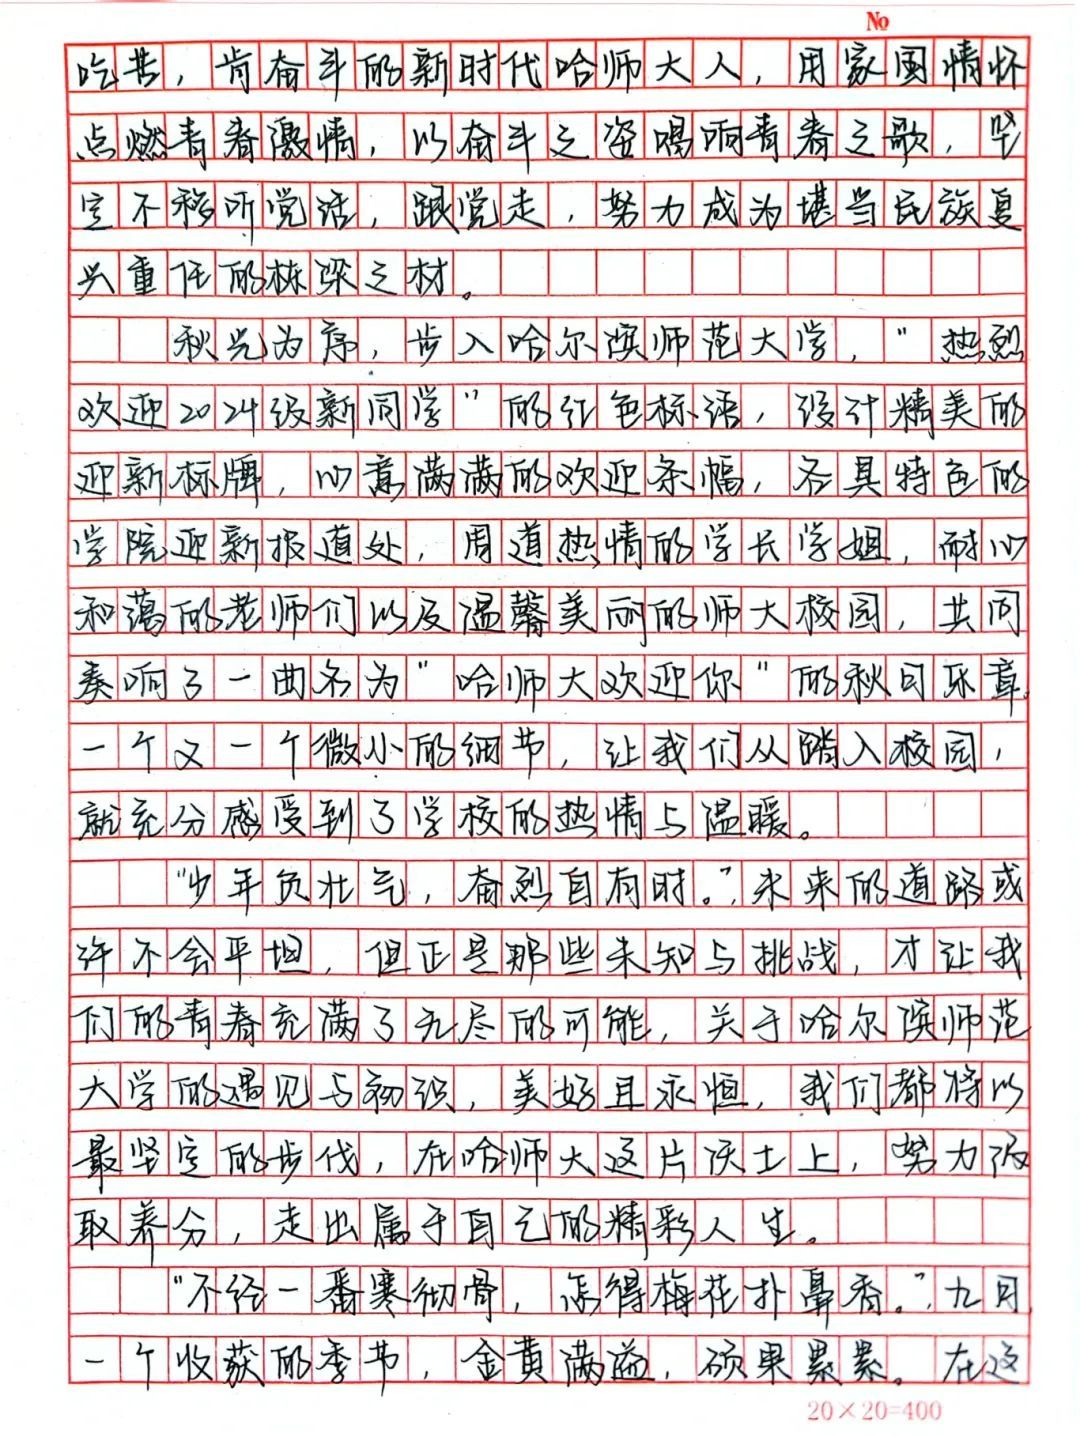 No
吃苦，肯奋斗的新时代哈师大人，用家国情怀
点燃青春激情，以奋斗之姿唱响青春之歌，坚
定不移听党话，跟党走，努力成为堪当民族复
兴重任的栋梁之材。
秋光为序，步入哈尔滨师范大学，“热烈
欢迎2024级新同学”的红色标语，设计精美的
迎新标牌，心意满满的欢迎条幅，各具特色的
学院迎新报道处，周道热情的学长学姐，耐心
和蔼的老师们以及温馨美丽的师大校园，共同
奏响了一曲名为“哈师大欢迎你”的秋日乐章。
一个又一个微小的细节，让我们从踏入校园，
就充分感受到了学校的热情与温暖。
“少年负壮气，奋烈自有时。”未来的道路或
许不会平坦，但正是那些未知与挑战，才让我
们的青春充满了无尽的可能，关于哈尔滨师范
大学的遇见与初识，美好且永恒，我们都将以
最坚定的步伐，在哈师大这片沃土上，努力汲
取养分，走出属于自己的精彩人生。
“不经一番寒彻骨，怎得梅花扑鼻香。”九月
一个收获的季节，金黄满溢，硕果累累。在这
20×20=400